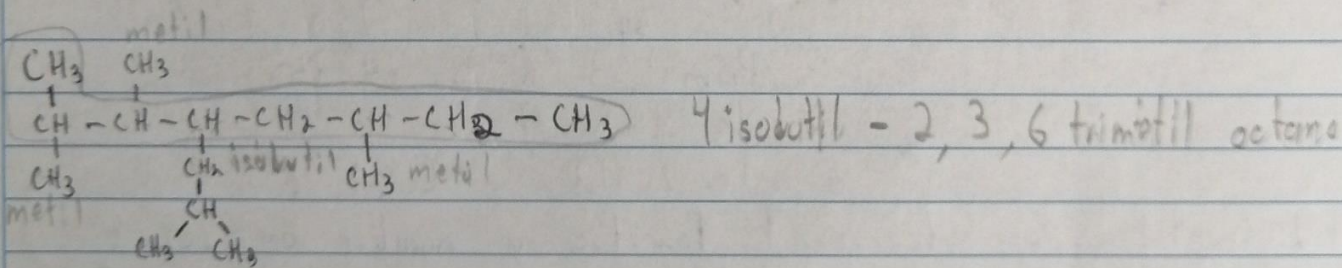 metil
CH3 CH3
CH - CH - CH - CH2 - CH - CH2 - CH3 4 isobutil - 2, 3, 6 trimetil octano
CH3 CH2 isobutil CH3 metil
metil CH
CH3 CH3